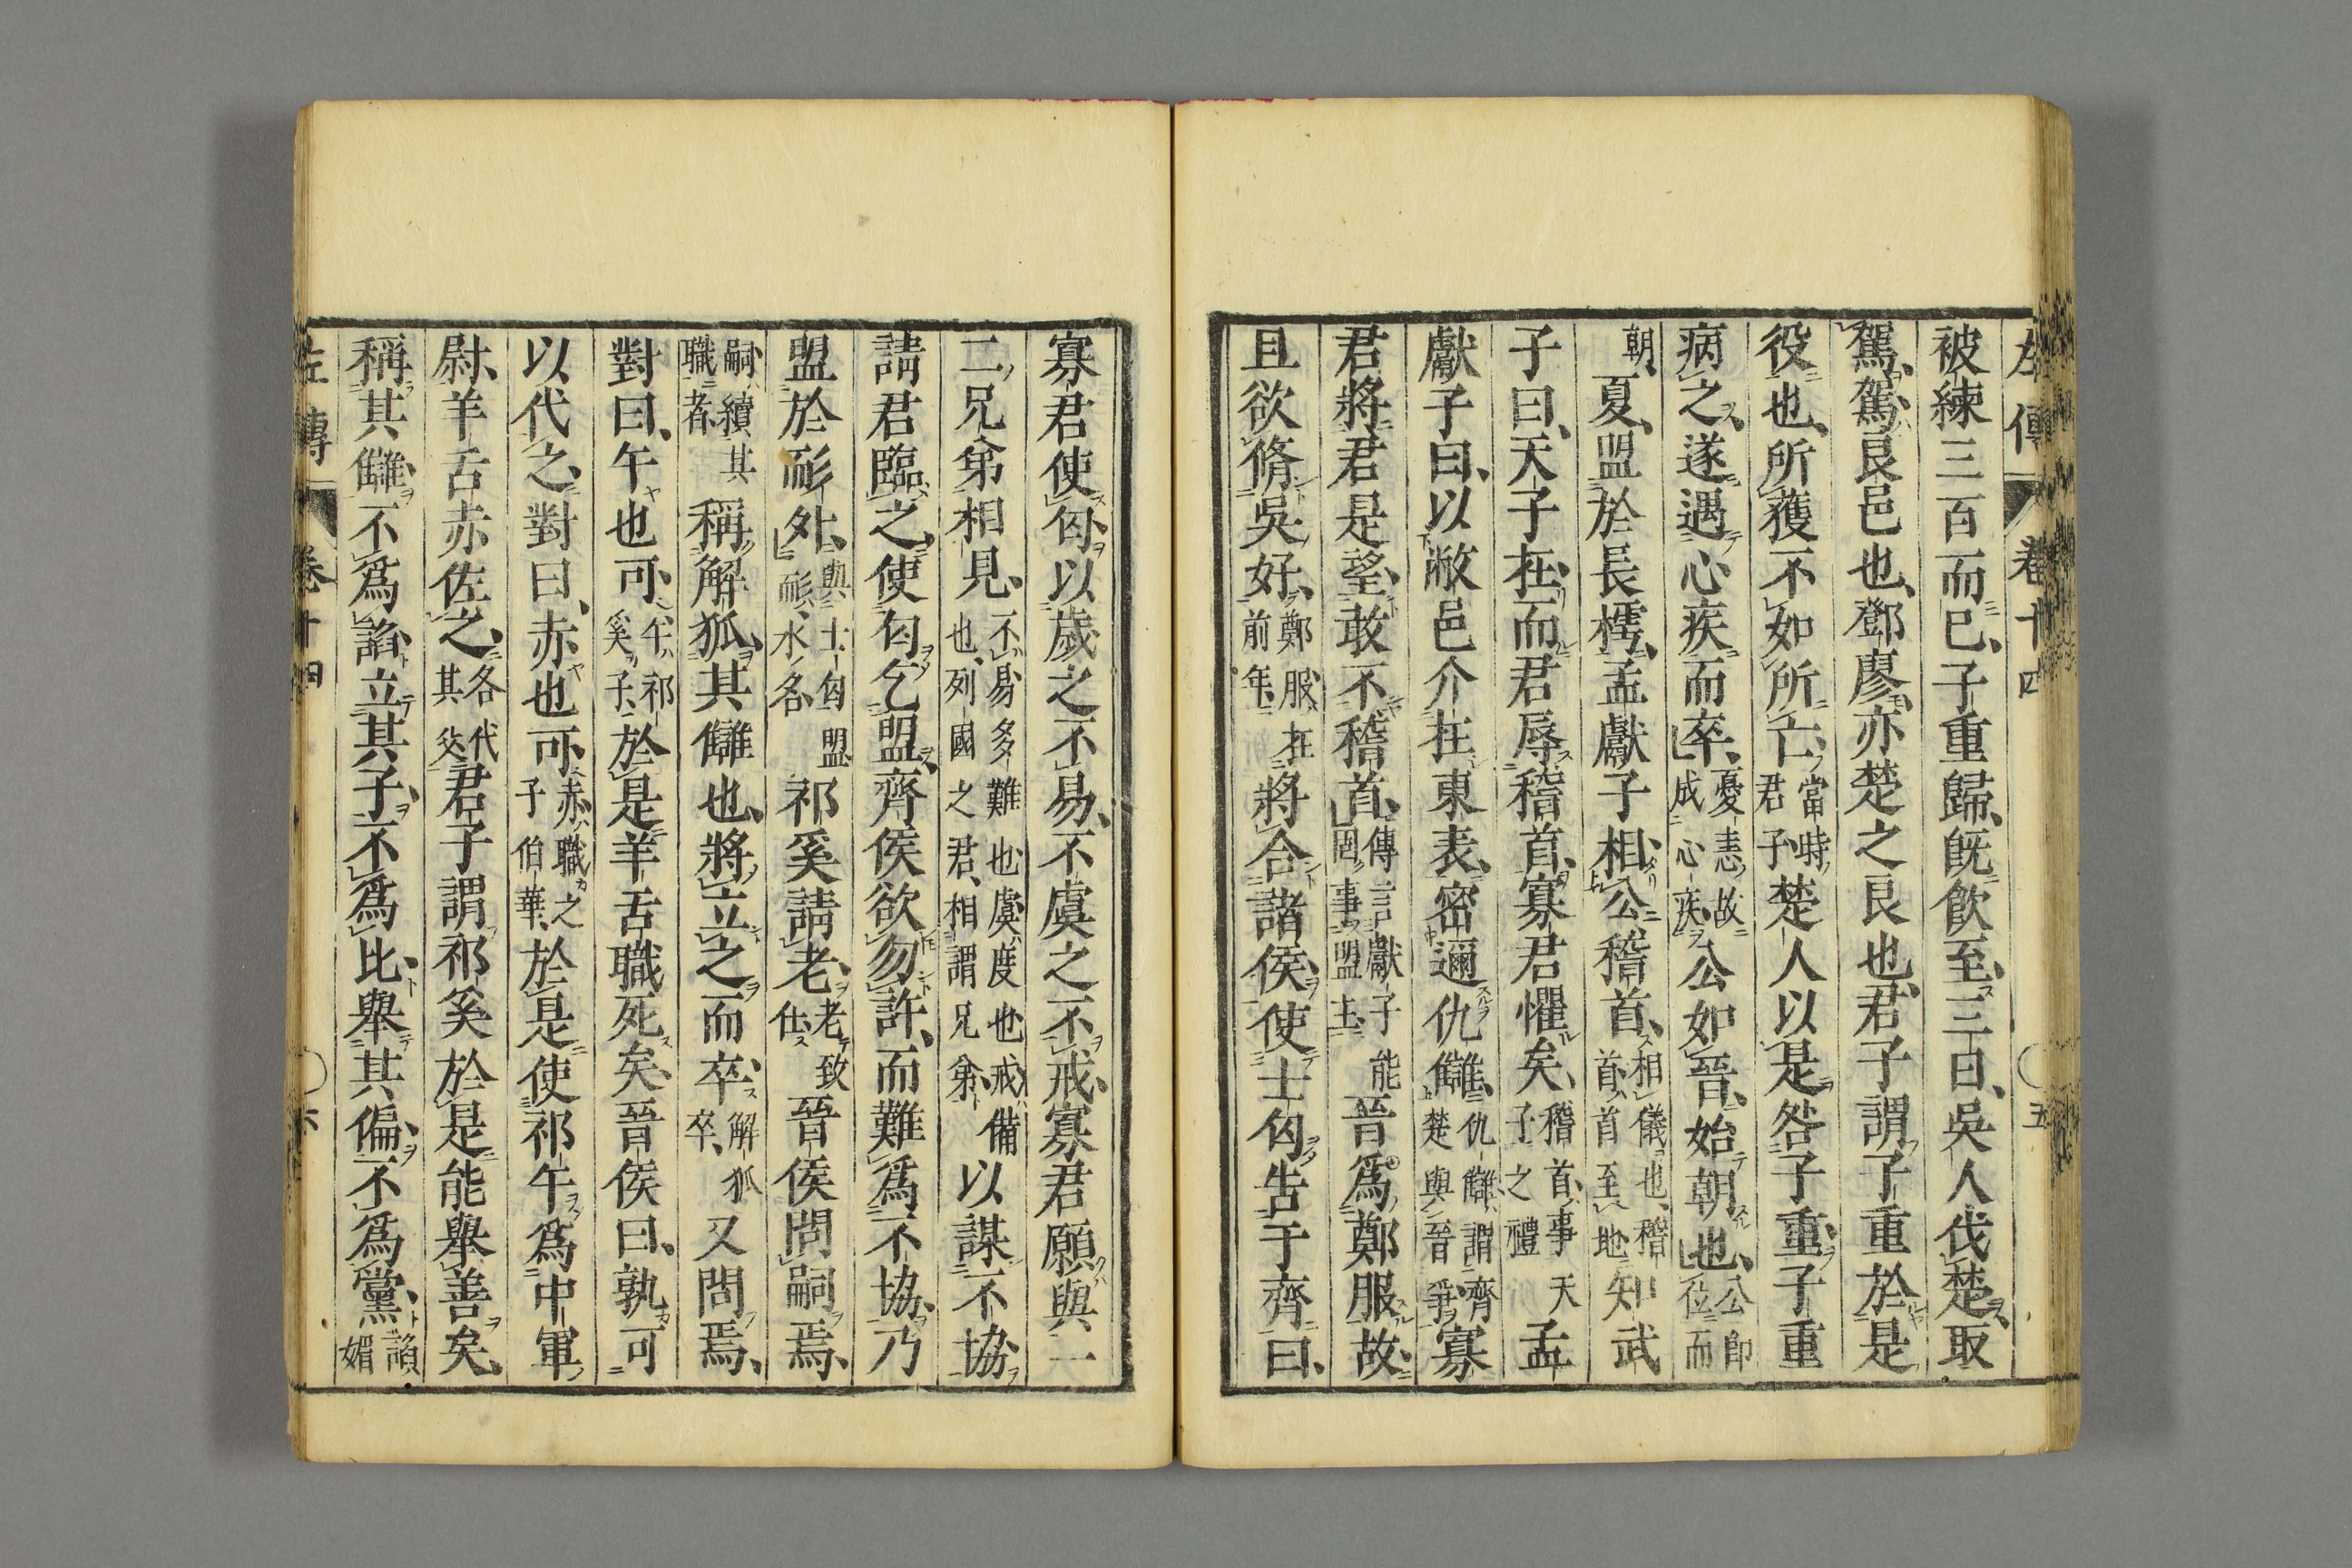 左傳 卷十四 五
被練三百而已、子重歸、既飮至、三日、吳人伐楚、取
駕、駕、良邑也、鄧廖、亦楚之良也、君子謂子重於是
役也、所獲不如所亡、當時君子楚人以是咎子重、子重
病之、遂遇心疾而卒、憂恚故成心疾、公如晉、始朝也、公卽位而
朝、夏、盟於長樗、孟獻子相、公稽首、相儀也、稽首、首至地、知武
子曰、天子在、而君辱稽首、寡君懼矣、稽首、事天子之禮孟
獻子曰、以敝邑介在東表、密邇仇讎、仇讎、謂齊楚與晉爭、寡
君將君是望、敢不稽首、傳言獻子能固事盟主、晉爲鄭服故、
且欲脩吳好、鄭服、在前年、將合諸侯、使士匄告于齊曰、
寡君使匄、以歲之不易、不虞之不戒、寡君願與一
二兄弟相見、不易、多難也、虞、度也、戒、備也、列國之君、相謂兄弟、以謀不協、
請君臨之、使匄乞盟、齊侯欲勿許、而難爲不協、乃
盟於耏外、與士匄盟耏、水名、祁奚請老、老、致仕、晉侯問嗣焉、
嗣、續其職者、稱解狐、其讎也、將立之而卒、解狐卒、又問焉、
對曰、午也可、午、祁奚子、於是羊舌職死矣、晉侯曰、孰可
以代之、對曰、赤也可、赤、職之子伯華、於是使祁午爲中軍
尉、羊舌赤佐之、各代其父、君子謂祁奚於是能舉善矣、
稱其讎、不爲諂、立其子、不爲比、舉其偏、不爲黨、諂、媚
左傳 卷十四 六